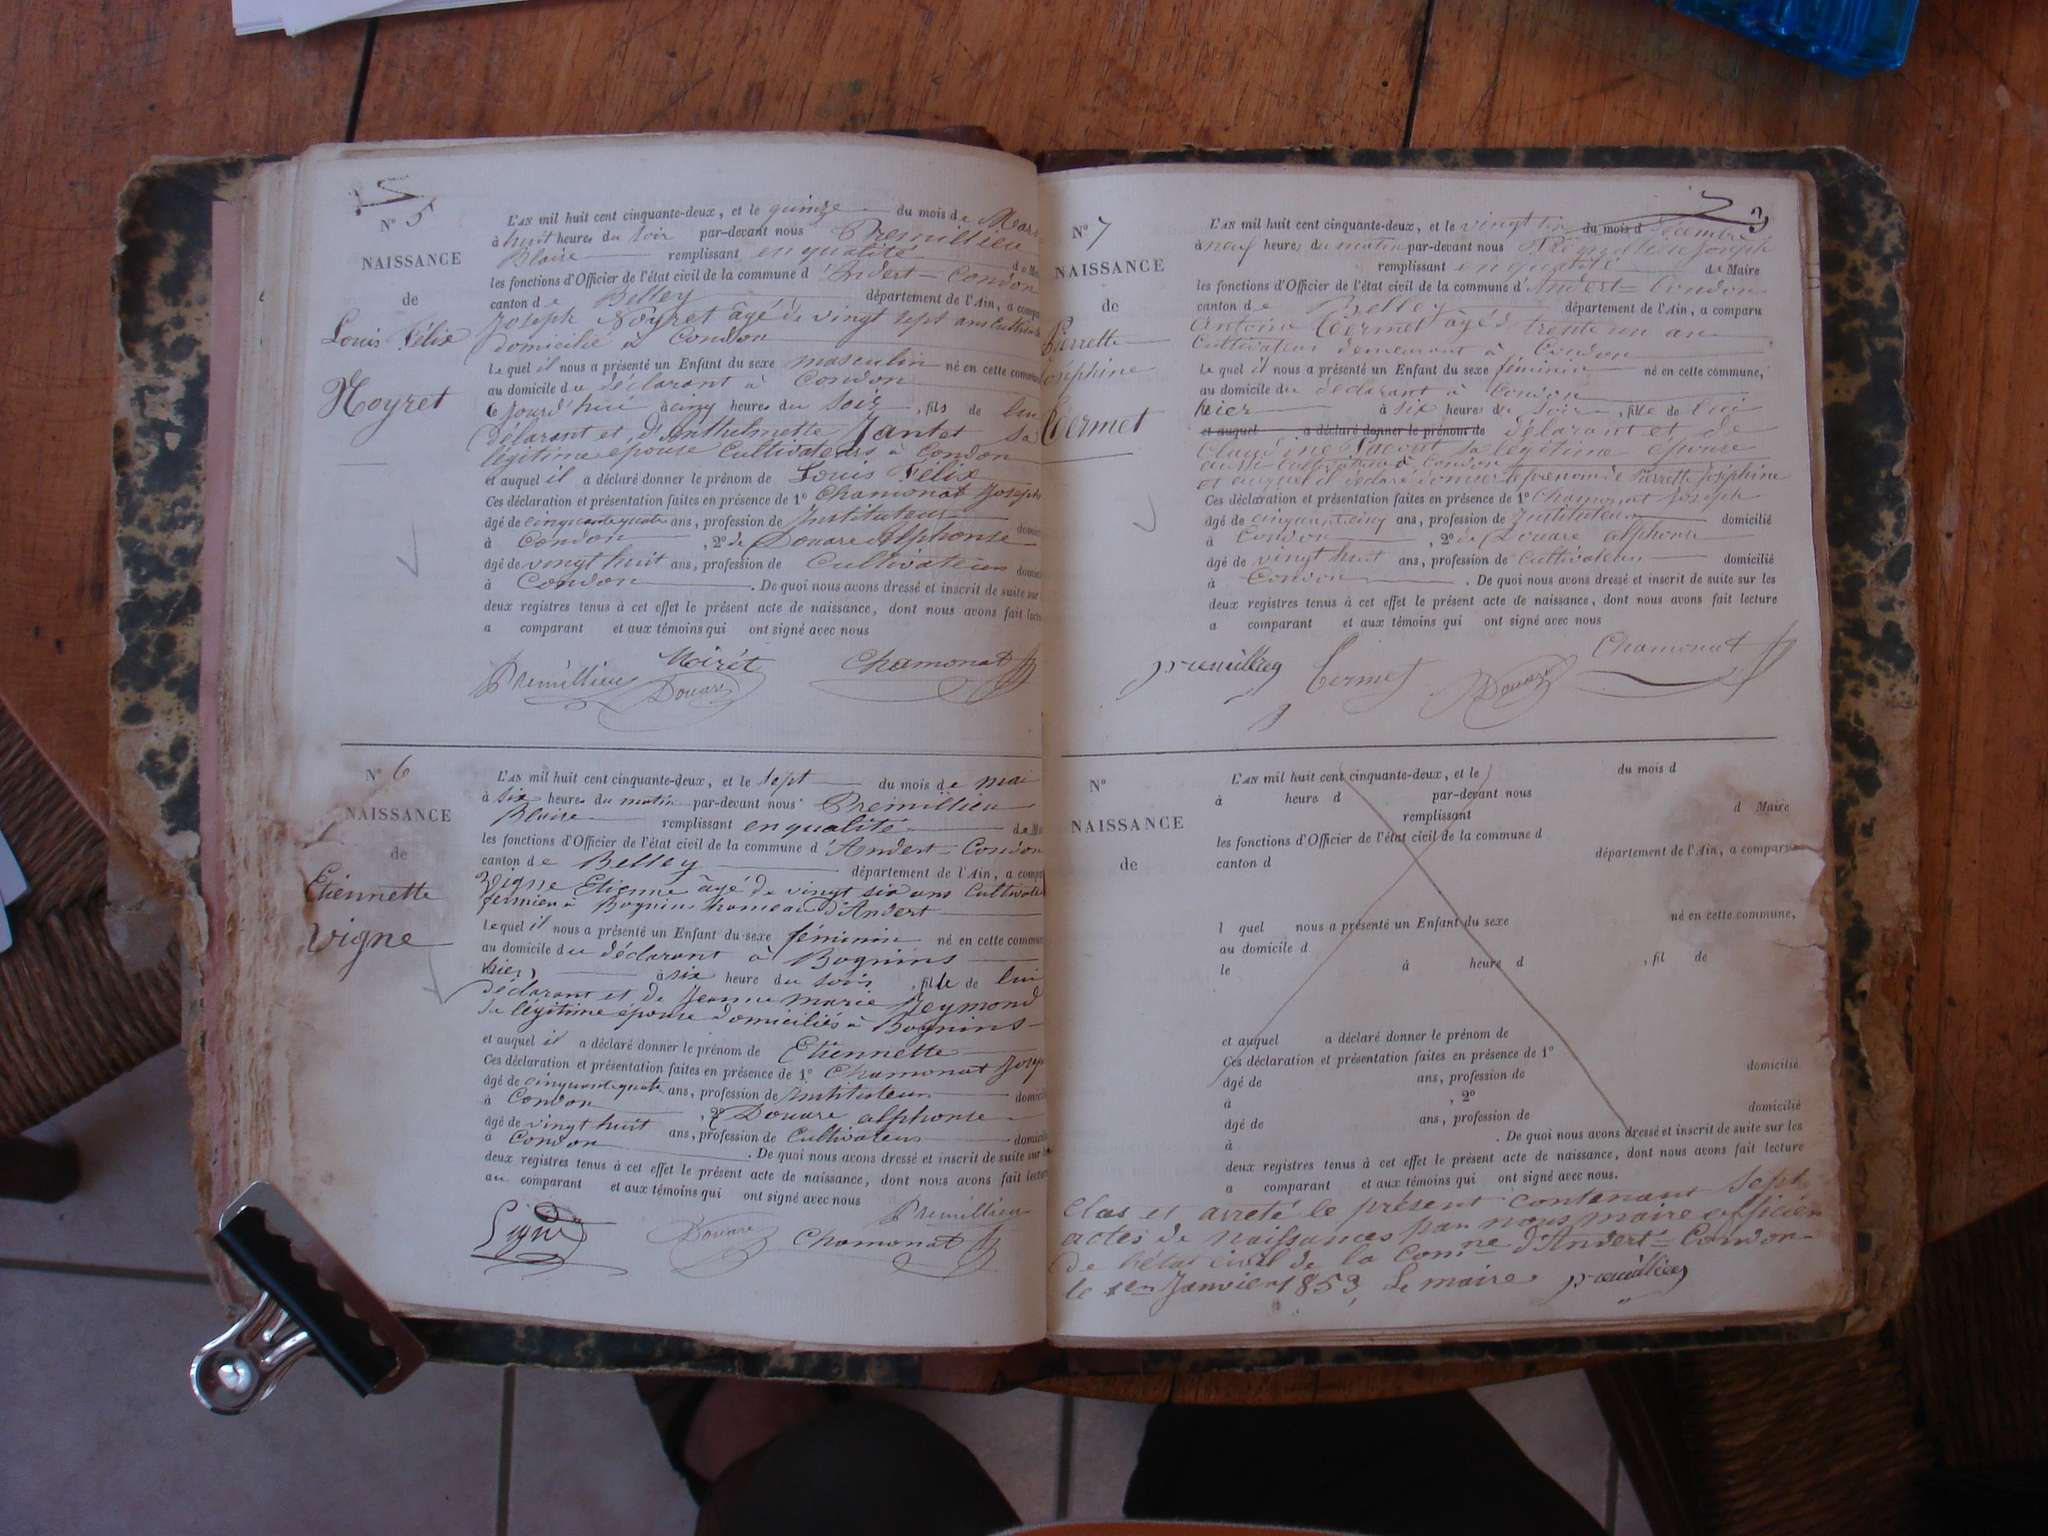 Nº 5
NAISSANCE
de
Louis Félix
Noyret
L'AN mil huit cent cinquante-deux, et le quinze du mois de Mars
à huit heures du soir par-devant nous Premillieu
Blaise remplissant en qualité de
les fonctions d'Officier de l'état civil de la commune d'Andert-Condon
canton de Belley département de l'Ain, a comparu
Joseph Noyret âgé de vingt sept ans Cultivateur
domicilié à Condon
Lequel il nous a présenté un Enfant du sexe masculin né en cette commune
au domicile du déclarant à Condon
ce jourd'hui à cinq heures du soir, fils de lui
délarant et d'Anthelmette Jantet sa
légitime épouse Cultivateurs à Condon
et auquel il a déclaré donner le prénom de Louis Félix
Ces déclaration et présentation faites en présence de 1º Chamonat Joseph
âgé de cinquante quatre ans, profession de Instituteur
à Condon, 2º de Douare Alphonse
âgé de vingt huit ans, profession de Cultivateur
à Condon. De quoi nous avons dressé et inscrit de suite sur
deux registres tenus à cet effet le présent acte de naissance, dont nous avons fait lecture
a comparant et aux témoins qui ont signé avec nous
Premillieu Noirét Douare Chamonat
Nº 6
NAISSANCE
de
Etiennette
Vigne
L'AN mil huit cent cinquante-deux, et le sept du mois de mai
à six heures du matin par-devant nous Premillieu
Blaise remplissant en qualité de
les fonctions d'Officier de l'état civil de la commune d'Andert-Condon
canton de Belley département de l'Ain, a comparu
Vigne Etienne âgé de vingt six ans Cultivateur
fermier à Bognins hameau d'Andert
Lequel il nous a présenté un Enfant du sexe féminin né en cette commune
au domicile du déclarant à Bognins
hier, à six heure du soir, fille de lui
déclarant et de Jeanne marie Jeymond
sa légitime épouse domiciliés à Bognins
et auquel il a déclaré donner le prénom de Etiennette
Ces déclaration et présentation faites en présence de 1º Chamonat Joseph
âgé de cinquante quatre ans, profession de Instituteur
à Condon, 2º Douare alphonse
âgé de vingt huit ans, profession de Cultivateur
à Condon. De quoi nous avons dressé et inscrit de suite sur
deux registres tenus à cet effet le présent acte de naissance, dont nous avons fait lecture
au comparant et aux témoins qui ont signé avec nous
Vigne Douare Chamonat Premillieu
3
Nº 7
NAISSANCE
de
Pierrette
Josephine
Termet
L'AN mil huit cent cinquante-deux, et le vingt six du mois d Décembre
à neuf heures du matin par-devant nous Prémillieu Joseph
remplissant en qualité de Maire
les fonctions d'Officier de l'état civil de la commune d'Andert-Condon
canton de Belley département de l'Ain, a comparu
Antoine Termet âgé de trente un an
Cultivateur demeurant à Condon
Lequel il nous a présenté un Enfant du sexe féminin né en cette commune,
au domicile du déclarant à Condon
hier à six heures du soir, fille de lui
et auquel a déclaré donner le prénom de délarant et de
Claudine sa légitime épouse
aussi cultivateur à Condon
et auquel il déclaré donner le prénom de Pierrette Joséphine
Ces déclaration et présentation faites en présence de 1º Chamonat Joseph
âgé de cinquante cinq ans, profession de Instituteur domicilié
à Condon, 2º de Douare alphonse
âgé de vingt huit ans, profession de Cultivateur domicilié
à Condon. De quoi nous avons dressé et inscrit de suite sur les
deux registres tenus à cet effet le présent acte de naissance, dont nous avons fait lecture
a comparant et aux témoins qui ont signé avec nous
premillieu Termet Douare Chamonat
Nº
NAISSANCE
de
L'AN mil huit cent cinquante-deux, et le du mois d
à heure d par-devant nous
remplissant d Maire
les fonctions d'Officier de l'état civil de la commune d
canton d département de l'Ain, a comparu
l quel nous a présenté un Enfant du sexe né en cette commune,
au domicile d
le à heure d, fil de
et auquel a déclaré donner le prénom de
Ces déclaration et présentation faites en présence de 1º
âgé de ans, profession de domicilié
à, 2º
âgé de ans, profession de domicilié
à. De quoi nous avons dressé et inscrit de suite sur les
deux registres tenus à cet effet le présent acte de naissance, dont nous avons fait lecture
a comparant et aux témoins qui ont signé avec nous.
Clos et arreté le présent contenant sept
actes de naissances par nous maire officier
de l'état civil de la Comne d'Andert-Condon
le 1er Janvier 1853, Le maire premillieu